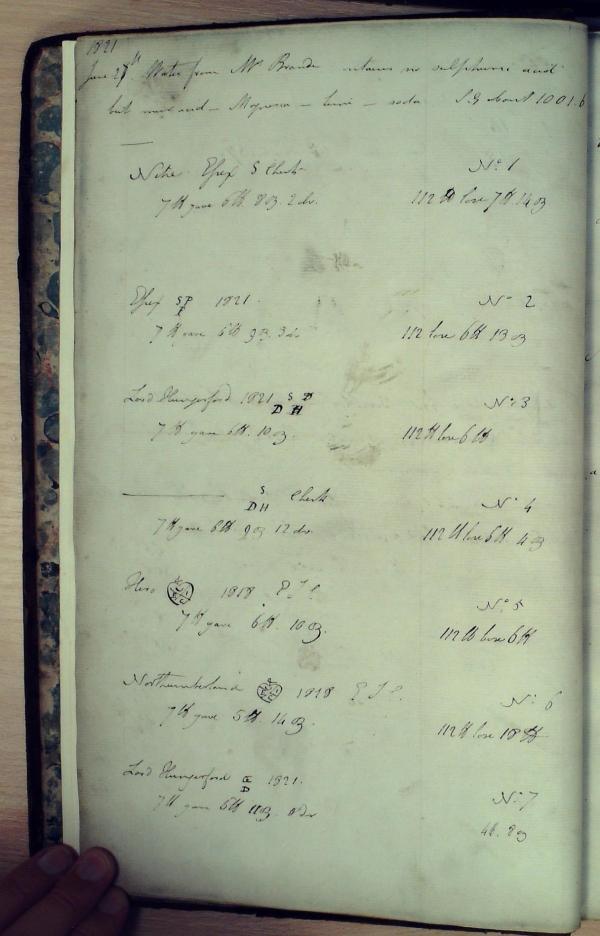 1821
June 27th Water from Mr Brande contains no sulphuric acid
but mur acid - Magnesia - lime - soda S.G about 1001.6
Nitre Essex S Clark No 1
7 lb gave 6 lb. 8 oz. 2 dr. 112 lb lose 7 lb 14 oz
Essex SP 1821. No 2
7 lb gave 6 lb 9 oz. 3 dr 112 lose 6 lb 13 oz
Lord Hungerford 1821 S D No 3
D H
7 lb gave 6 lb. 10 oz. 112 lb lose 6 lb
S.
DH No 4
7 lb gave 6 lb 9 oz 12 dr. 112 lb lose 6 lb. 4 oz
1818 No 5
7 lb gave 6 lb. 10 oz. 112 lb lose 6 lb
Northumberland 1818 No 6
7 lb gave 5 lb 14 oz. 112 lb lose 18 lb
Lord Hungerford 1821. No 7
7 lb gave 6 lb 11 oz. 4 lb. 8 oz